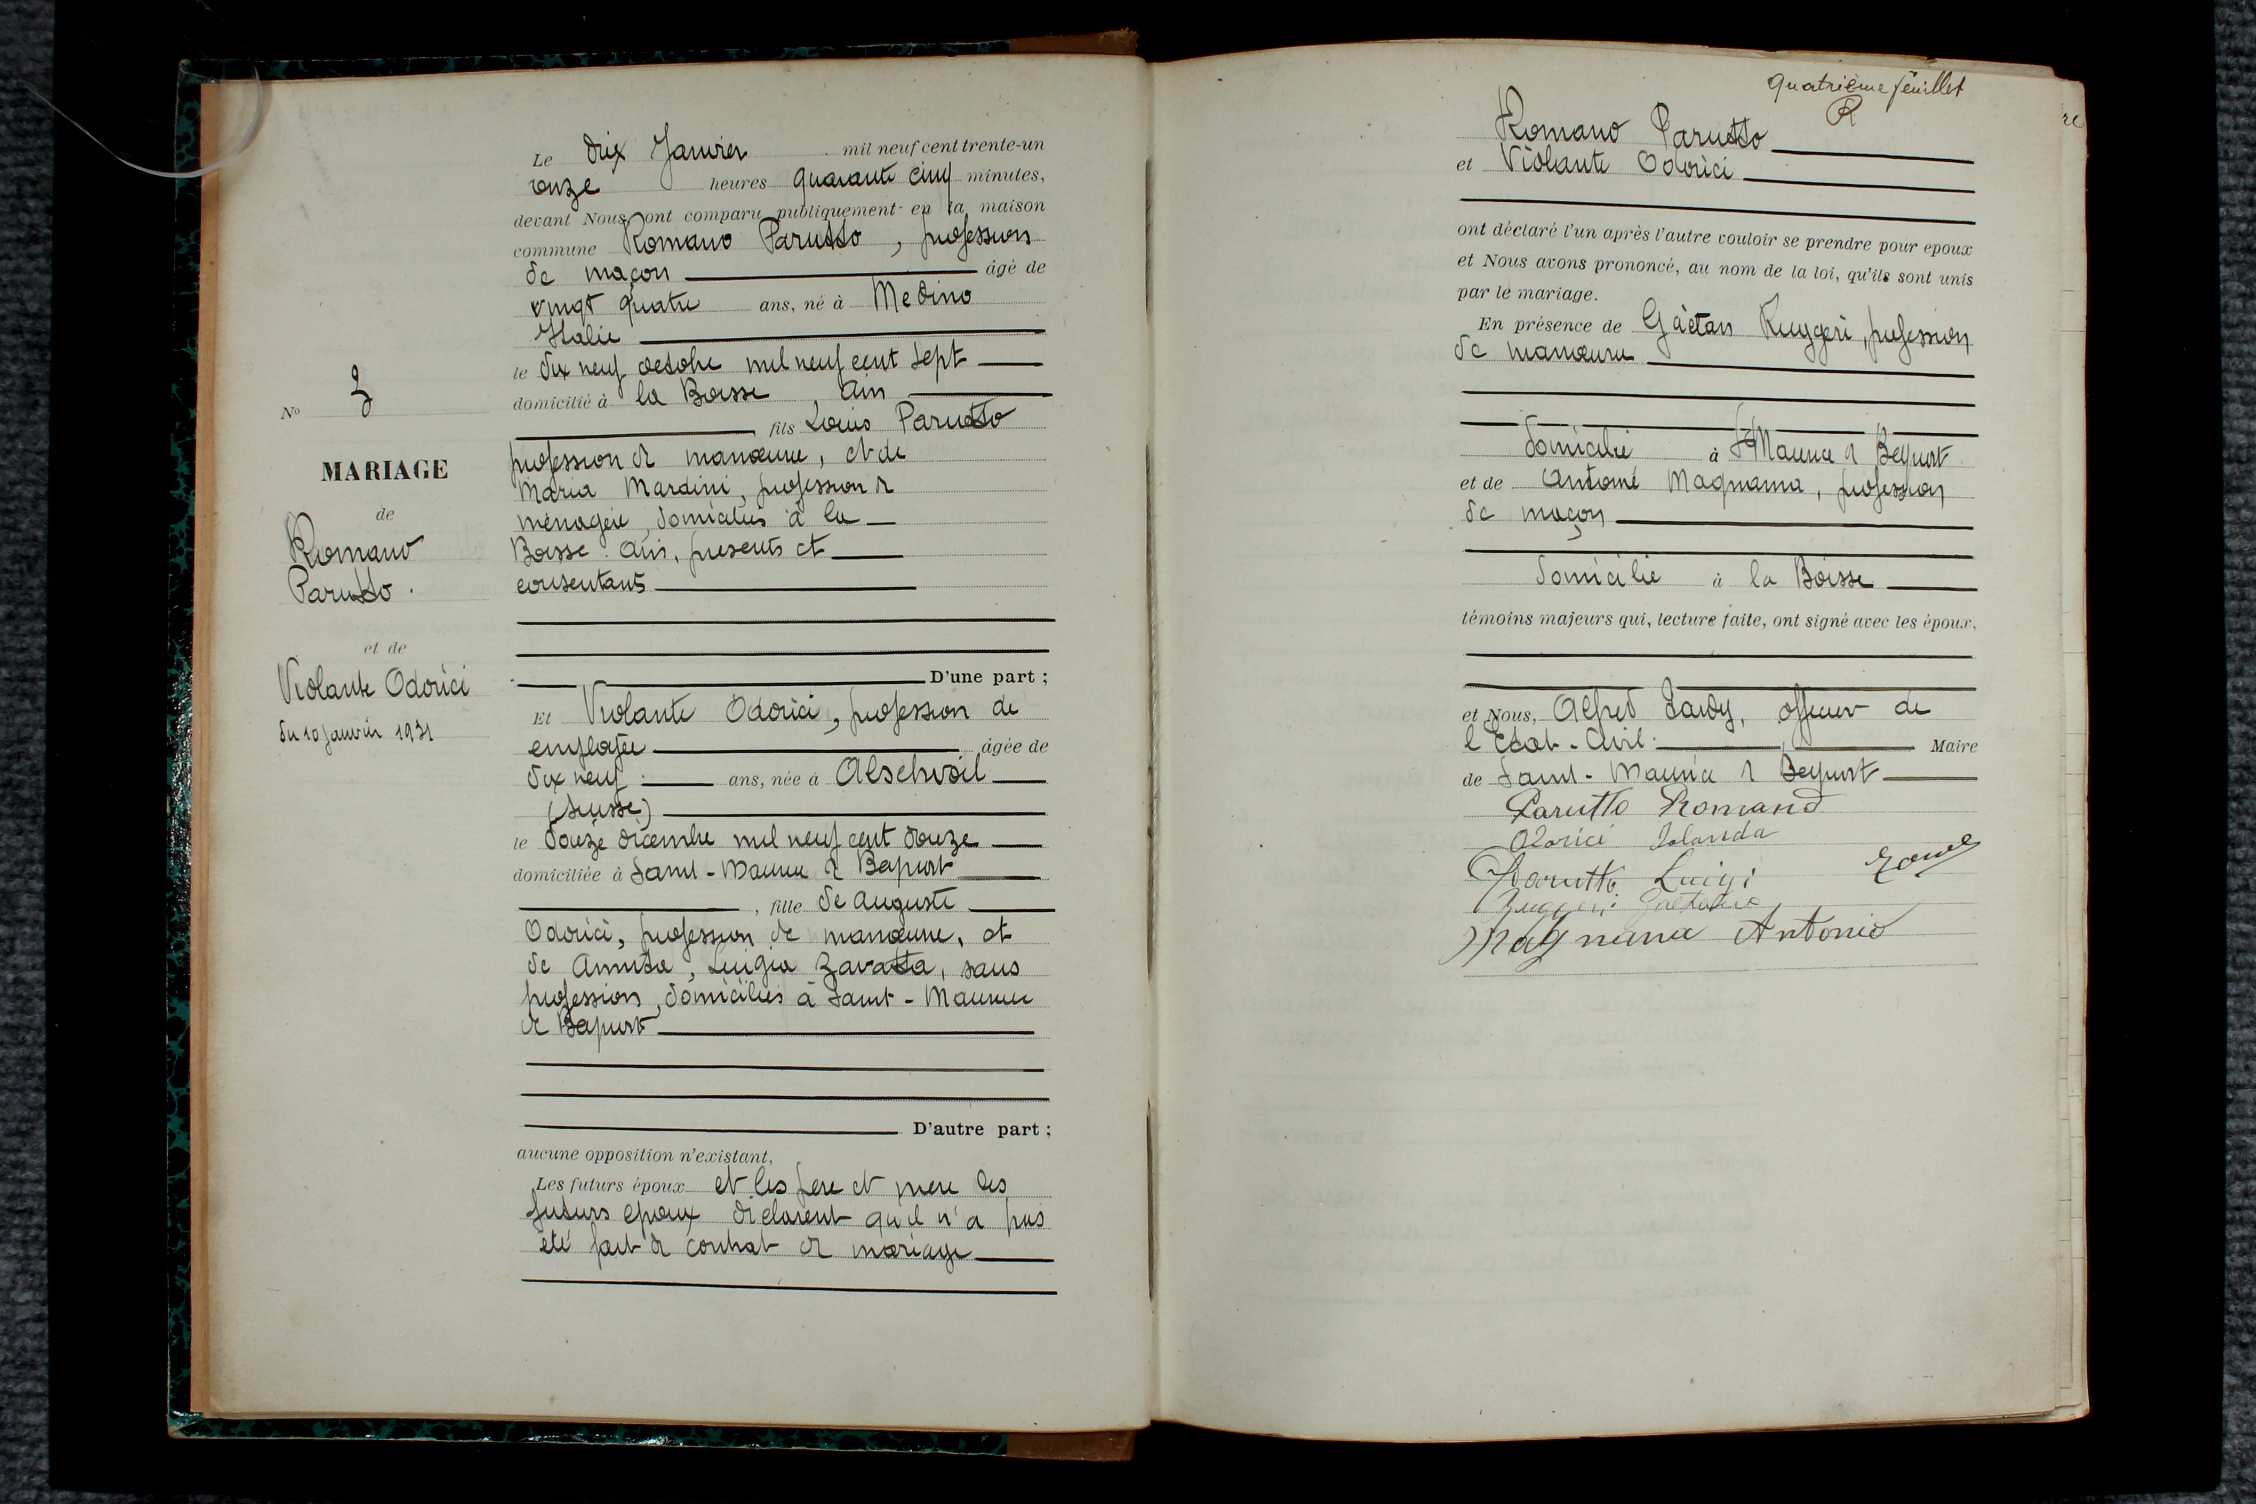 No 3
MARIAGE
de
Romano
Parutto.
et de
Violante Odorici
du 10 Janvier 1931
Le dix Janvier mil neuf cent trente-un
onze heures quarante cinq minutes,
devant Nous ont comparu publiquement en la maison
commune Romano Parutto, profession
de maçon âgé de
vingt quatre ans, né à Medino
Italie
le dix neuf octobre mil neuf cent sept
domicilié à la Boisse, Ain
fils Louis Parutto
profession de manœuvre, et de
Maria Mardini, profession de
ménagère, domiciliés à la
Boisse. Ain, présents et
consentants
D'une part ;
Et Violante Odorici, profession de
employée âgée de
dix neuf ans, née à Alschwil
(Suisse)
le douze décembre mil neuf cent douze
domiciliée à Saint-Maurice de Beynost
, fille de Auguste
Odorici, profession de manœuvre, et
de Annita, Luigia Zavatta, sans
profession, domiciliés à Saint-Maurice
de Beynost
D'autre part ;
aucune opposition n'existant,
Les futurs époux et les père et mère des
futurs époux déclarent qu'il n'a pas
été fait de contrat de mariage
quatrième feuillet
R
Romano Parutto
et Violante Odorici
ont déclaré l'un après l'autre vouloir se prendre pour epoux
et Nous avons prononcé, au nom de la loi, qu'ils sont unis
par le mariage.
En présence de Gaëtan Ruggeri, profession
de manœuvre
domicilié à St Maurice de Beynost
et de Antoine Magnama, profession
de maçon
domicilié à la Boisse
témoins majeurs qui, lecture faite, ont signé avec les époux,
et Nous, Alfred Jardy, officier de
l'Etat-Civil. Maire
de Saint-Maurice de Beynost
Parutto Romano
Odorici Jolanda
Parutto Luigi
Ruggeri Gaetano
Magnana Antonio